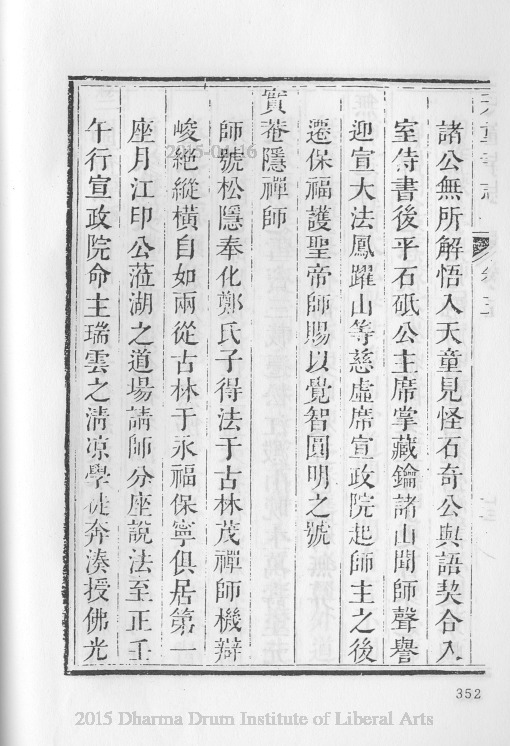 諸公無所解悟入天童見怪石奇公與語契合入
室侍書後平石砥公主席掌藏鑰諸山聞師聲譽
迎宣大法鳳躍山等慈虛席宣政院起師主之後
遷保福護聖帝師賜以覺智圓明之號
實菴隱禪師
師號松隱奉化鄭氏子得法于古林茂禪師機辯
峻絕縱橫自如兩從古林于永福保寧俱居第一
座月江印公蒞湖之道場請師分座說法至正壬
午行宣政院命主瑞雲之淸凉學徒奔湊授佛光
352
2015 Dharma Drum Institute of Liberal Arts